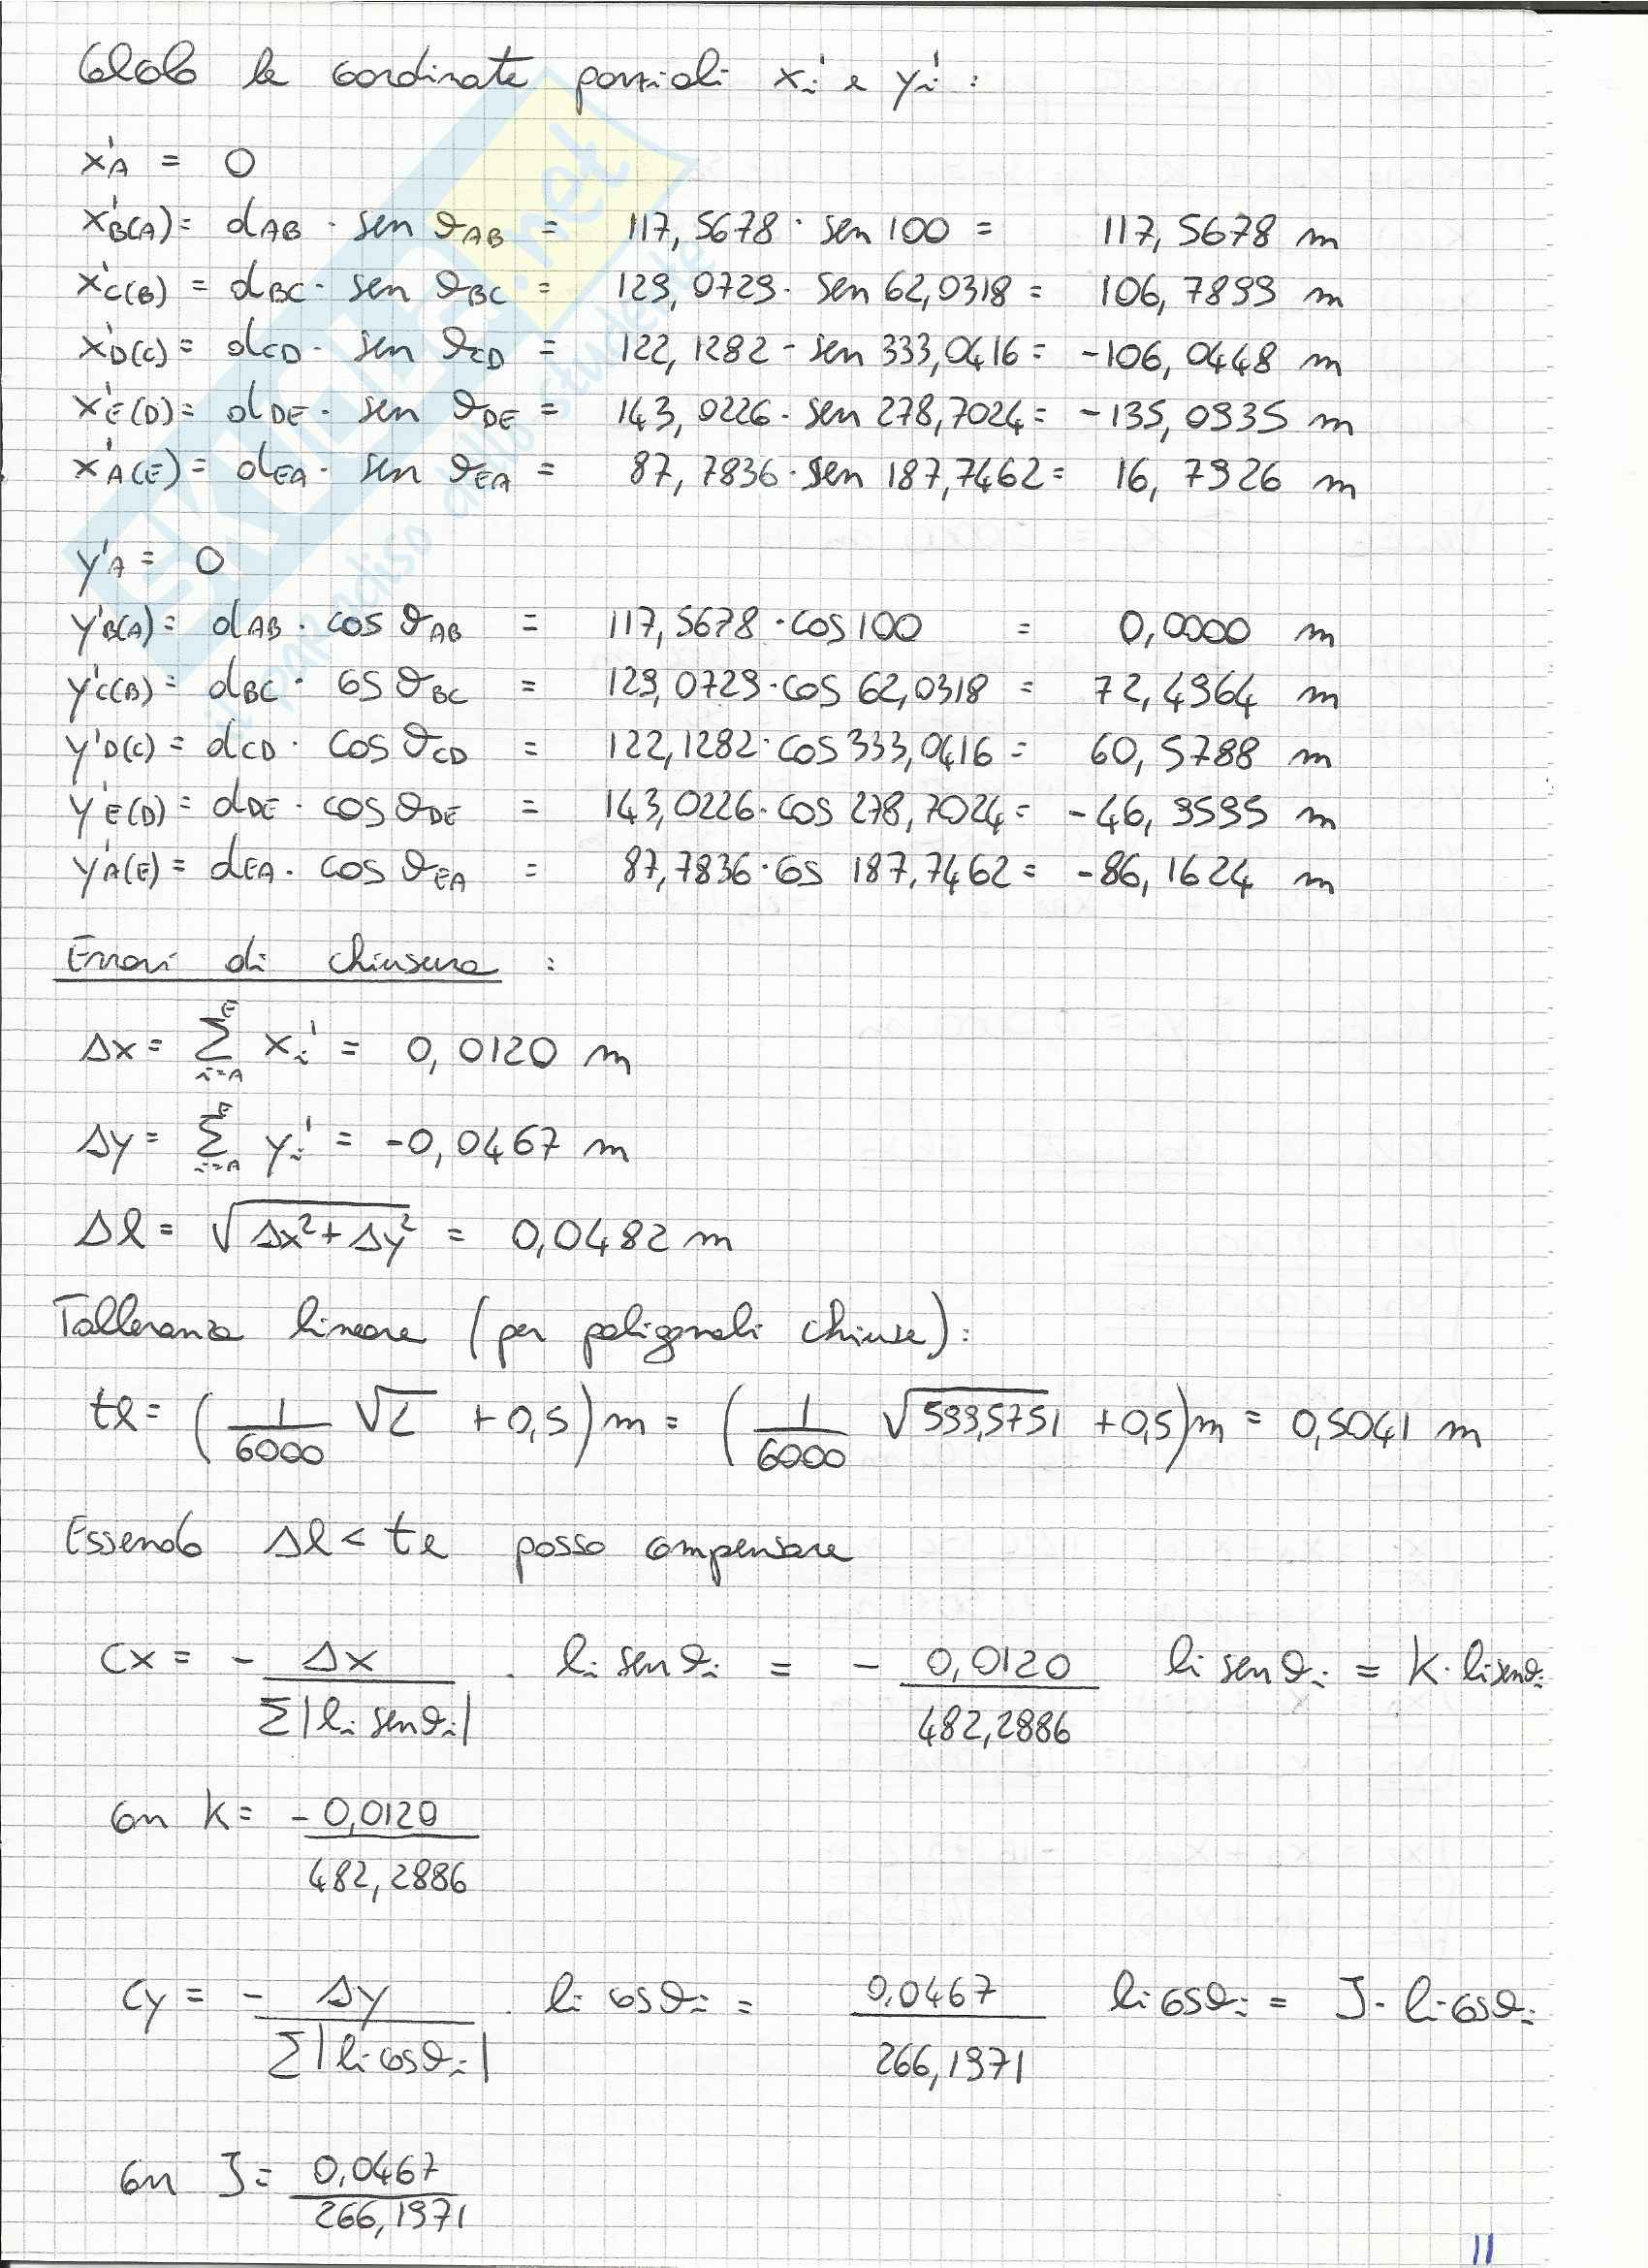 Calcolo le coordinate parziali xi' e yi' :
x'A = 0
x'B(A) = dAB · sen θAB = 117,5678 · sen 100 = 117,5678 m
x'C(B) = dBC · sen θBC = 129,0729 · sen 62,0318 = 106,7899 m
x'D(C) = dCD · sen θCD = 122,1282 · sen 333,0416 = -106,0448 m
x'E(D) = dDE · sen θDE = 143,0226 · sen 278,7024 = -135,0935 m
x'A(E) = dEA · sen θEA = 87,7836 · sen 187,7462 = 16,7926 m
y'A = 0
y'B(A) = dAB · cos θAB = 117,5678 · cos 100 = 0,0000 m
y'C(B) = dBC · cos θBC = 129,0729 · cos 62,0318 = 72,4964 m
y'D(C) = dCD · cos θCD = 122,1282 · cos 333,0416 = 60,5788 m
y'E(D) = dDE · cos θDE = 143,0226 · cos 278,7024 = -46,9595 m
y'A(E) = dEA · cos θEA = 87,7836 · cos 187,7462 = -86,1624 m
Errori di chiusura :
Δx = Σ(i=A→E) xi' = 0,0120 m
Δy = Σ(i=A→E) yi' = -0,0467 m
Δl = √(Δx² + Δy²) = 0,0482 m
Tolleranza lineare (per poligonali chiuse) :
tl = (1/6000 √L + 0,5) m = (1/6000 √599,5751 + 0,5) m = 0,5041 m
Essendo Δl < tl posso compensare
Cx = - Δx / Σ|li senθi| · li senθi = - 0,0120 / 482,2886 li senθi = K · li senθi
con K = -0,0120 / 482,2886
Cy = - Δy / Σ|li cosθi| · li cosθi = 0,0467 / 266,1971 li cosθi = J · li cosθi
con J = 0,0467 / 266,1971
11